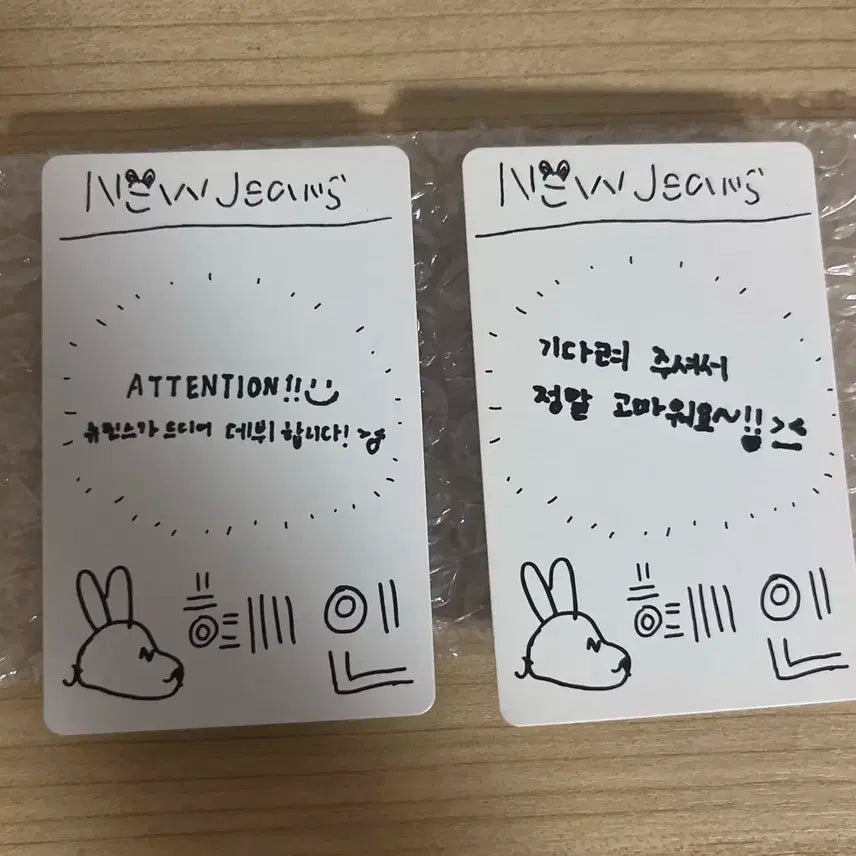 NEW Jeans
ATTENTION!!
뉴진스가 드디어 데뷔합니다!
혜인
NEW Jeans
기다려 주셔서
정말 고마워요~!!
혜인